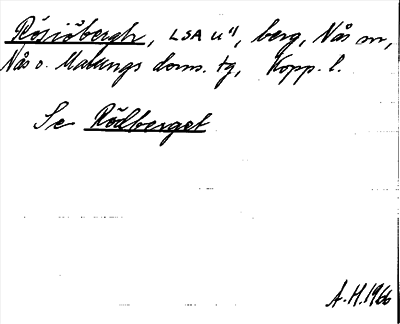 Rösjöbergh, LSA U 4, berg, Nås sn,
Nås o. Malungs doms. tg, Kopp. l.
Se Rödberget
A.H. 1966